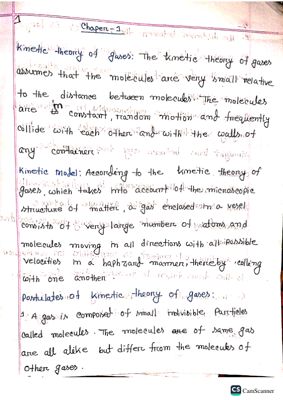 1
Chaper-1.
Kinetic theory of gases: The kinetic theory of gases
assumes that the molecules are very small relative
to the distance between molecules. The molecules
are in constant, random motion and frequently
collide with each other and with the walls of
any container.
Kinetic model: According to the kinetic theory of
gases, which takes into account of the microscopic
structure of matter, a gas enclosed in a vesel
consists of very large number of atoms and
molecules moving in all directions with all possible
velocities in a haphzard manner, thereby colling
with one another.
Postulates of kinetic theory of gases:
1. A gas is composed of small indivisible Particles
called molecules. The molecules are of same gas
are all alike but differ from the molecules of
other gases.
CS CamScanner